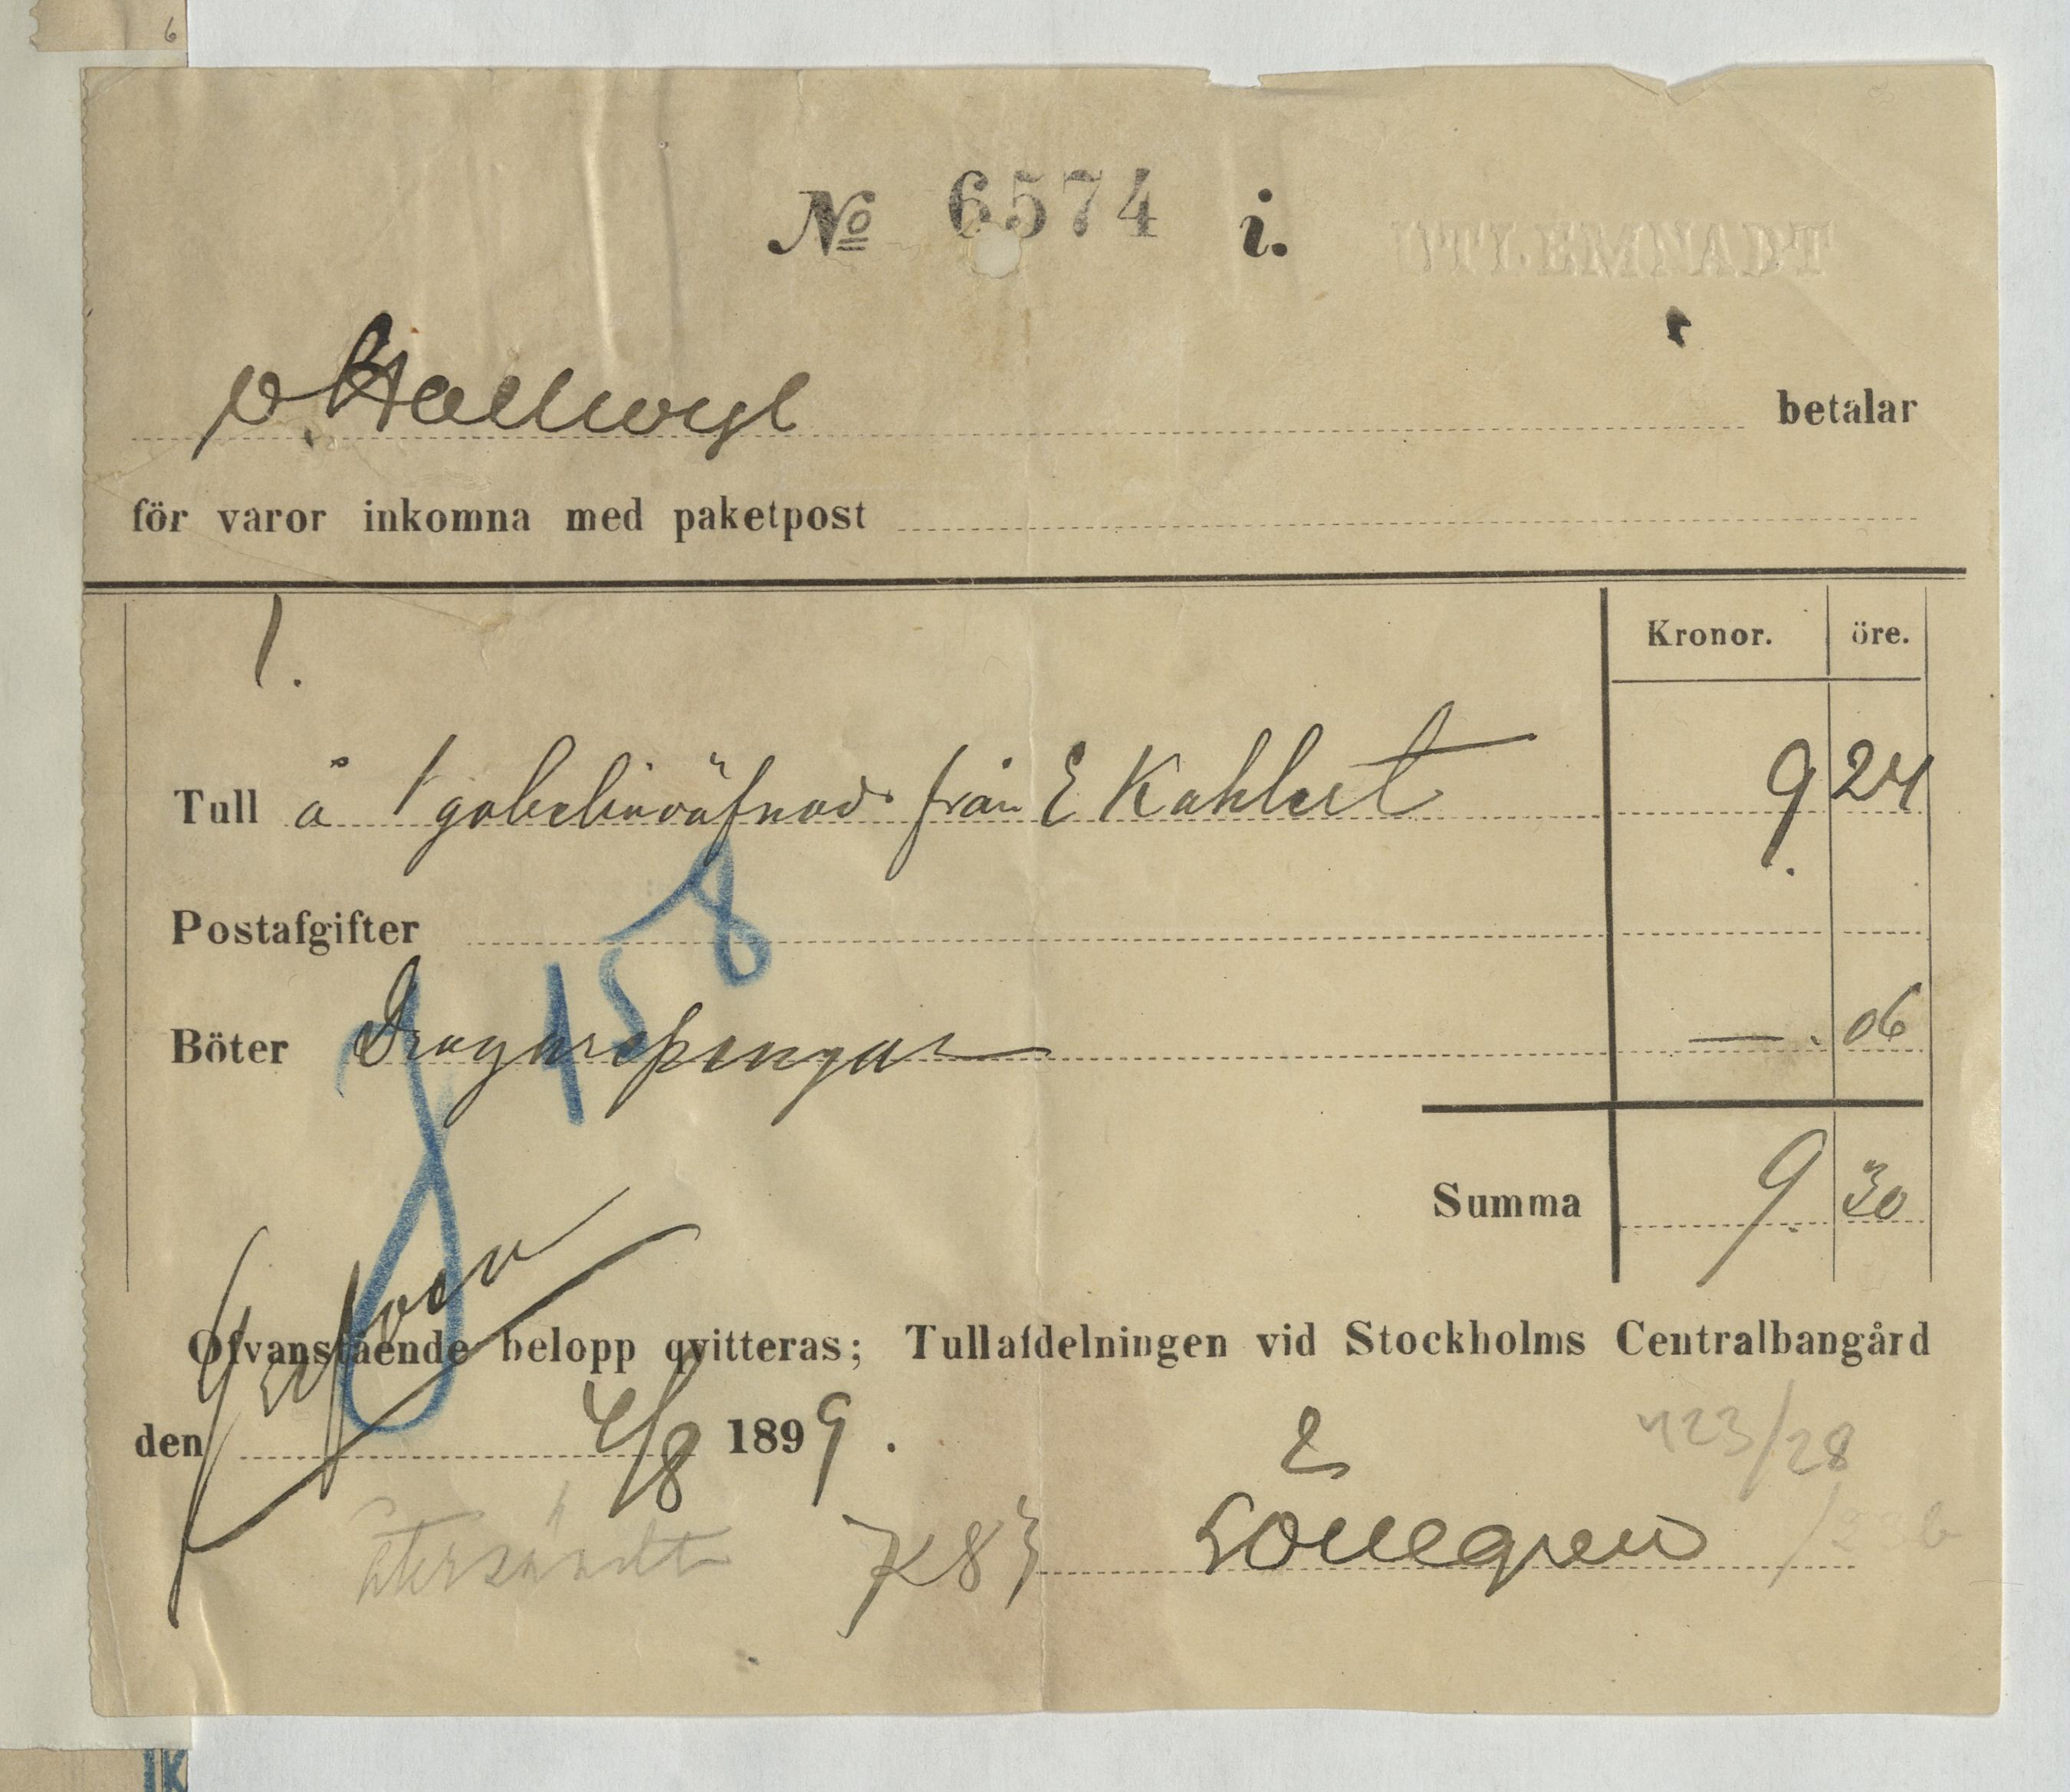 6
No 6574 i.
UTLEMNADT
v. Hallwyl betalar
för varor inkomna med paketpost
Kronor. öre.
1.
Tull å 1 gobelinväfnad från E Kahlert 9. 24
158
Postafgifter
Böter Dragarepengar — . 06
Summa 9. 30
Ofvanstående belopp qvitteras; Tullafdelningen vid Stockholms Centralbangård
den 4/8 1899.
423/28
återsändt K83 Lönegren